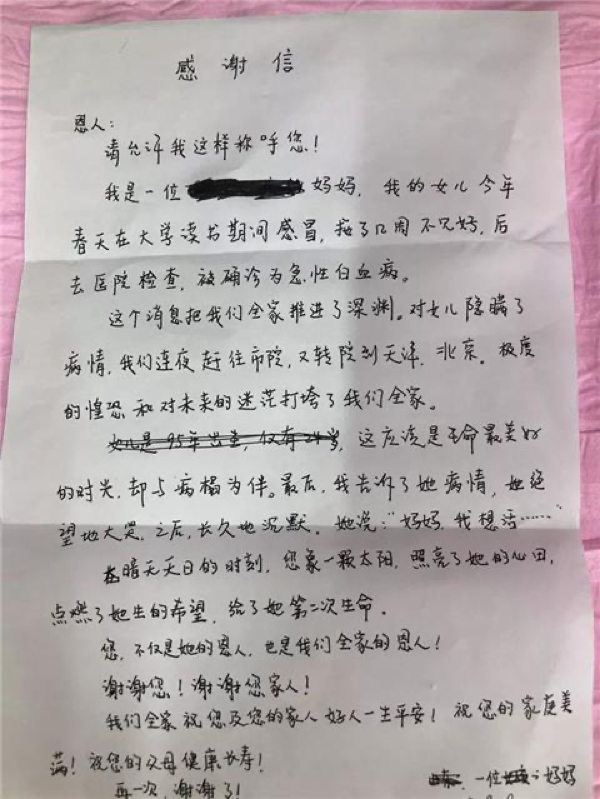 感谢信
恩人：
请允许我这样称呼您！
我是一位妈妈，我的女儿今年
春天在大学读书期间感冒，拖了几周不见好，后
去医院检查，被确诊为急性白血病。
这个消息把我们全家推进了深渊。对女儿隐瞒了
病情，我们连夜赶往市院，又转院到天津、北京。极度
的惶恐和对未来的迷茫打垮了我们全家。
女儿是95年出生，仅有24岁，这应该是生命最美好
的时光，却与病榻为伴。最后，我告诉了她病情，她绝
望地大哭，之后，长久地沉默，她说：“妈妈，我想活……”
在暗无天日的时刻，您象一颗太阳，照亮了她的心田，
点燃了她生的希望，给了她第二次生命。
您，不仅是她的恩人，也是我们全家的恩人！
谢谢您！谢谢您家人！
我们全家祝您及您的家人好人一生平安！祝您的家庭美
满！祝您的父母健康长寿！
再一次，谢谢了！ 一位妈妈